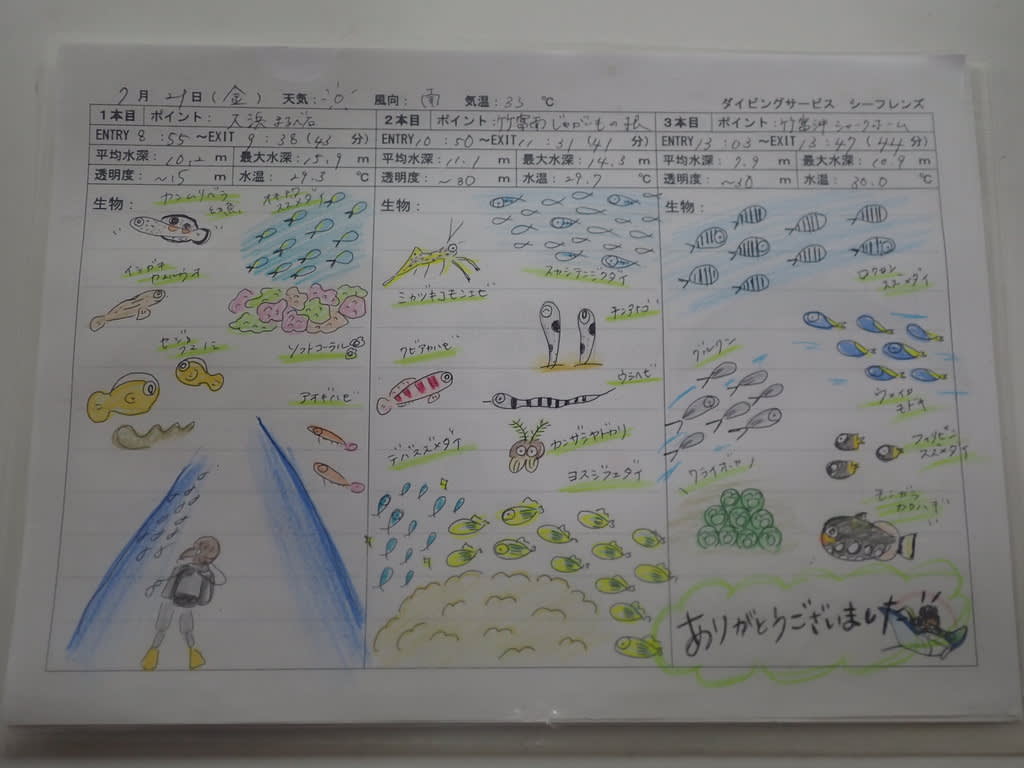 7月21日(金) 天気: 風向: 南 気温: 33 ℃ ダイビングサービス シーフレンズ
1本目 ポイント: 大浜
ENTRY 8:55 ~EXIT 9:38 (43 分)
平均水深: 10.2 m 最大水深: 15.9 m
透明度: ~15 m 水温: 29.3 ℃
生物:
カンムリベラ
幼魚
ソフトコーラル
アオギハゼ
2本目 ポイント: 竹富南じゃがいもの根
ENTRY 10:50 ~EXIT 11:31 (41 分)
平均水深: 11.1 m 最大水深: 14.3 m
透明度: ~30 m 水温: 29.7 ℃
生物:
スカシテンジクダイ
ミカヅキコモンエビ
チンアナゴ
クビアカハゼ
ウミヘビ
デバスズメダイ
カンザシヤドカリ
ヨスジフエダイ
3本目 ポイント: 竹富沖シャークホーム
ENTRY 13:03 ~EXIT 13:47 (44 分)
平均水深: 7.9 m 最大水深: 10.9 m
透明度: ~30 m 水温: 30.0 ℃
生物:
ロクセン
スズメダイ
グルクン
ウメイロ
モドキ
フィリピン
スズメダイ
モンガラ
カワハギ
ありがとうございました